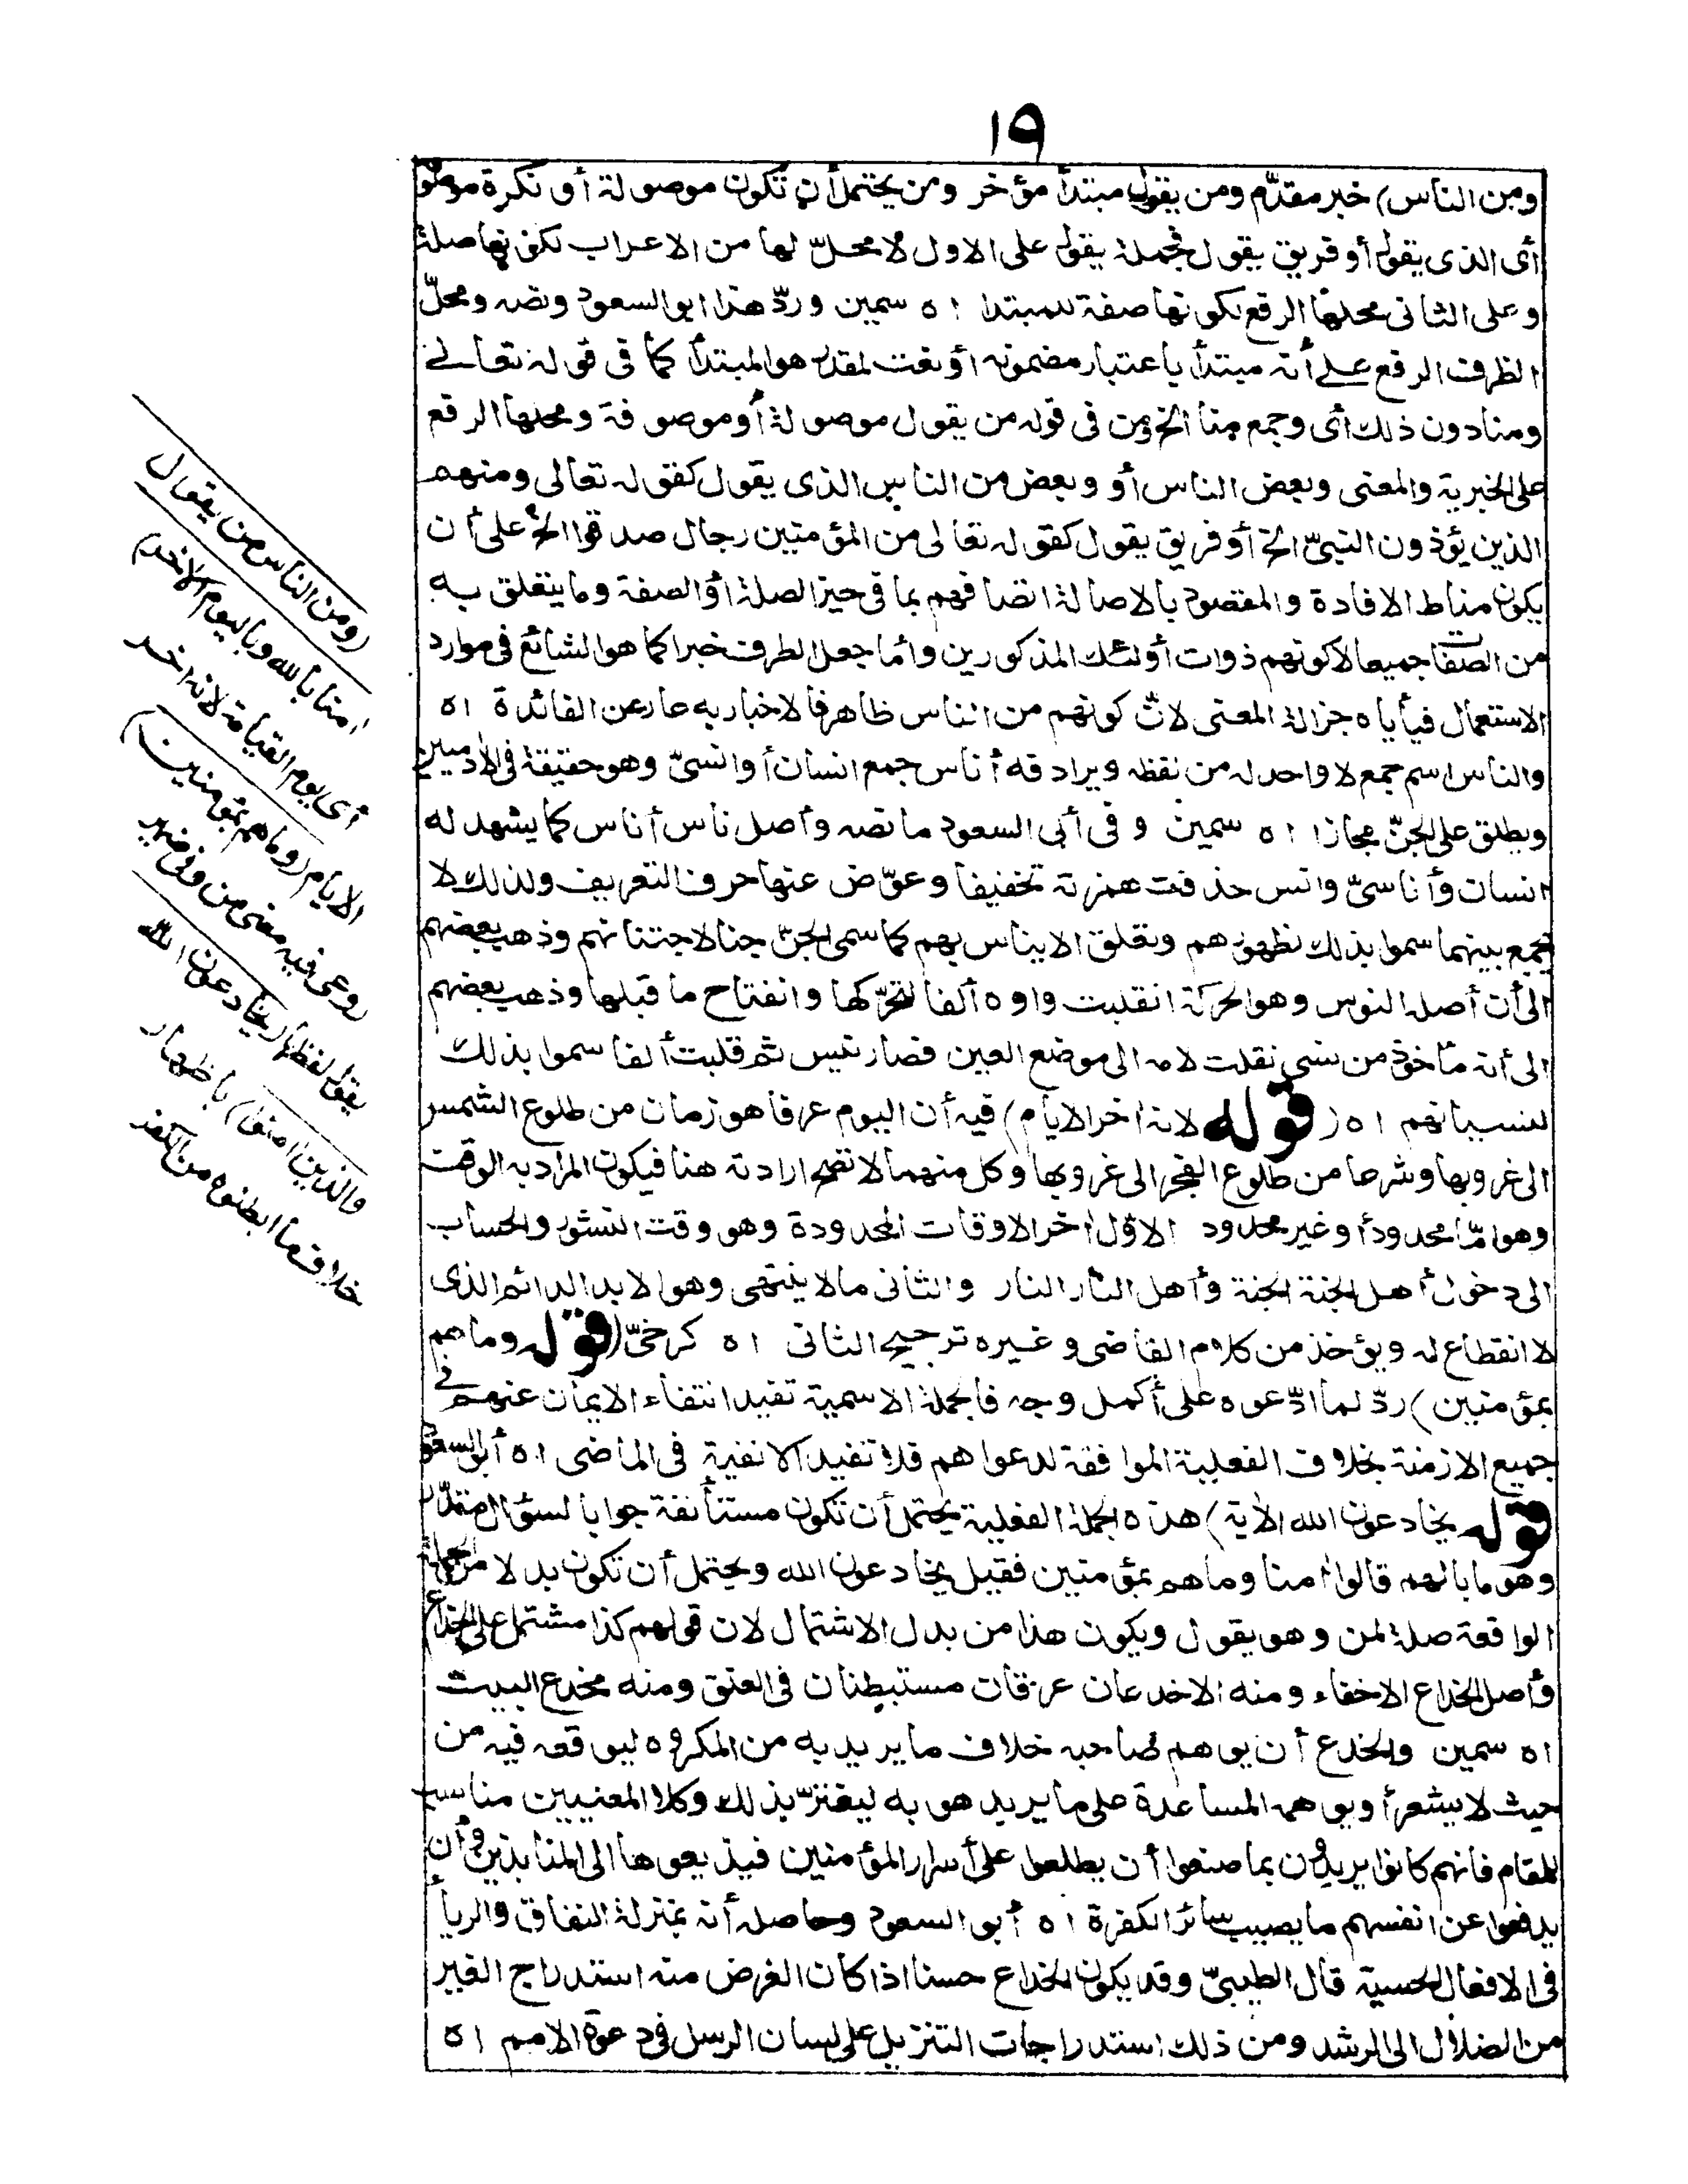 ١٩
ومن الناس) خبر مقدّم ومن يقول مبتدأ مؤخر ومن يحتمل أن تكون موصولة أو نكرة موصو
أى الذى يقول أو فريق يقول فجملة يقول على الاول لا محلّ لها من الاعراب لكونها صلة
وعلى الثانى محلها الرفع لكونها صفة للمبتدا اه سمين وردّ هذا ابو السعود ونصه ومحلّ
الظرف الرفع على أنه مبتدأ باعتبار مضمونه أو نعت لمقدر هو المبتدأ كما فى قوله تعالى
ومنا دون ذلك أى وجمع منا الخ ومن فى قوله من يقول موصولة أو موصوفة ومحلها الرفع
على الخبرية والمعنى وبعض الناس أو وبعض من الناس الذى يقول كقوله تعالى ومنهم
الذين يؤذون النبىّ الخ أو فريق يقول كقوله تعالى من المؤمنين رجال صدقوا الخ على أن
يكون مناط الافادة والمقصود بالاصالة اتصافهم بما فى حيز الصلة أو الصفة وما يتعلق به
من الصفات جميعا لا كونهم ذوات أولئك المذكورين وأما جعل الظرف خبرا كما هو الشائع فى موارد
الاستعمال فيأباه جزالة المعنى لانّ كونهم من الناس ظاهر فالاخبار به عار عن الفائدة اه
والناس اسم جمع لا واحد له من لفظه ويرادفه أناس جمع انسان أو انسىّ وهو حقيقة فى الآدميين
ويطلق على الجنّ مجازا اه سمين وفى أبى السعود ما نصه وأصل ناس أناس كما يشهد له
انسان وأناسىّ وانس حذفت همزته تخفيفا وعوّض عنها حرف التعريف ولذلك لا
يجمع بينهما سموا بذلك لظهورهم وتعلق الايناس بهم كما سمى الجنّ جنا لاجتنانهم وذهب بعضهم
الى أن أصله النوس وهو الحركة انقلبت واوه ألفا لتحرّكها وانفتاح ما قبلها وذهب بعضهم
الى أنه مأخوذ من نسى نقلت لامه الى موضع العين فصار نيس ثم قلبت ألفا سموا بذلك
لنسيانهم اه (قوله لانه اخر الايام) فيه أن اليوم عرفا هو زمان من طلوع الشمس
الى غروبها وشرعا من طلوع الفجر الى غروبها وكل منهما لا تصح ارادته هنا فيكون المراد به الوقت
وهو امّا محدود أو غير محدود الاول اخر الاوقات المحدودة وهو وقت النشور والحساب
الى دخول أهل الجنة الجنة وأهل النار النار والثانى ما لا ينتهى وهو الابد الدائم الذى
لا انقطاع له ويؤخذ من كلام القاضى وغيره ترجيح الثانى اه كرخىّ (قوله وما هم
بمؤمنين) ردّ لما ادّعوه على أكمل وجه فالجملة الاسمية تفيد انتفاء الايمان عنهم فى
جميع الازمنة بخلاف الفعلية الموافقة لدعواهم فلا تفيد الا نفيه فى الماضى اه أبو السعود
قوله يخادعون الله الآية) هذه الجملة الفعلية يحتمل أن تكون مستأنفة جوابا لسؤال مقدّر
وهو ما بالهم قالوا امنا وما هم بمؤمنين فقيل يخادعون الله ويحتمل أن تكون بدلا من الجملة
الواقعة صلة لمن وهو يقول ويكون هذا من بدل الاشتمال لان قولهم كذا مشتمل على الخداع
وأصل الخداع الاخفاء ومنه الاخدعان عرقان مستبطنان فى العنق ومنه مخدع البيت
اه سمين والخدع أن يوهم صاحبه خلاف ما يريد به من المكروه ليوقعه فيه من
حيث لا يشعر أو يوهمه المساعدة على ما يريد هو به ليغترّ بذلك وكلا المعنيين مناسب
للمقام فانهم كانوا يريدون بما صنعوا أن يطلعوا على أسرار المؤمنين فيذيعوها الى المنابذين وأن
يدفعوا عن انفسهم ما يصيب سائر الكفرة اه أبو السعود وحاصله أنه بمنزلة النفاق والريأ
فى الافعال الحسية قال الطيبىّ وقد يكون الخداع حسنا اذا كان الغرض منه استدراج الغير
من الضلال الى الرشد ومن ذلك استدراجات التنزيل على لسان الرسل فى دعوة الامم اه
(ومن الناس من يقول
امنا بالله وباليوم الاخر)
أى يوم القيامة لانه اخر
الايام (وما هم بمؤمنين)
روعى فيه معنى من وفى ضمير
يقول لفظها (يخادعون الله
والذين امنوا) باظهار
خلاف ما ابطنوه من الكفر